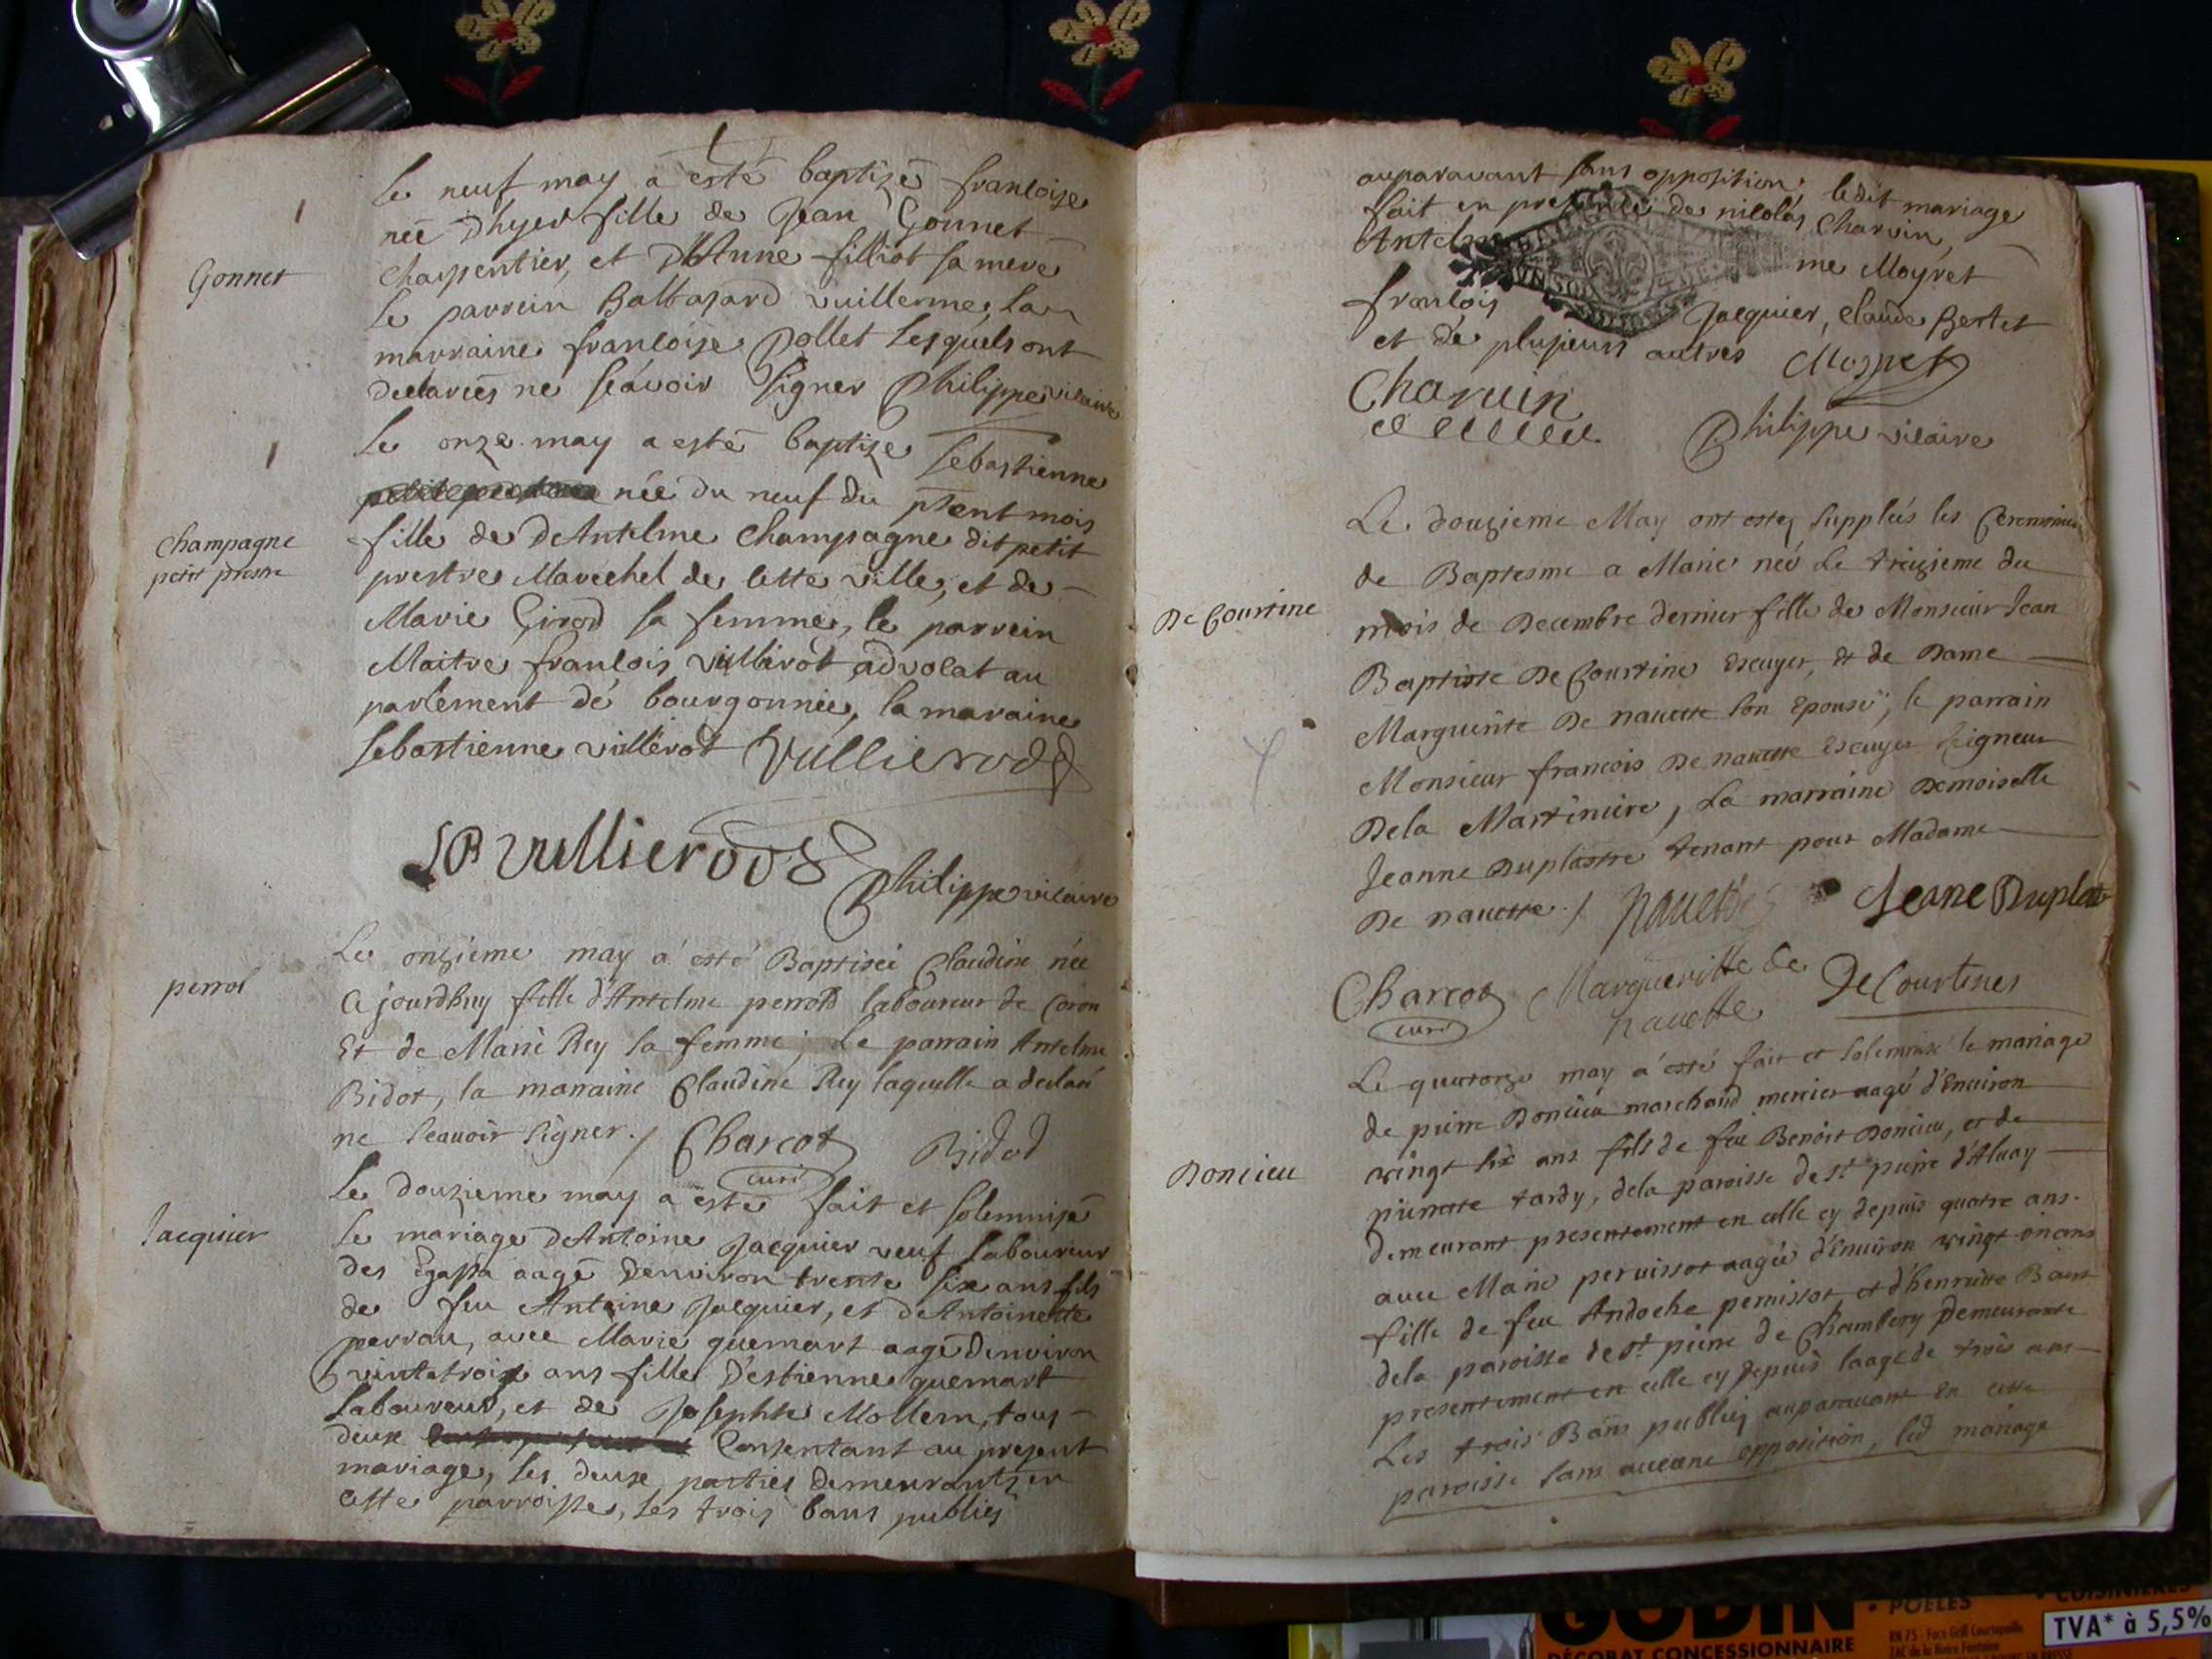 Le neuf may a esté baptizé françoise
née Dhyer fille de Jean Gonnet
Gonnet
charpentier, et D'Anne filliot sa mere
le parrein Baltazard vuillerme, la
marraine françoise pollet lesquels ont
declarées ne sçavoir signer Philippe vicaire
Le onze may a esté baptize sebastienne
née du neuf du pśent mois
champagne
petit prestre
fille de D'Antelme champagne dit petit
prestre Marechel de cette ville, et de
Marie Girod sa femme, le parrein
Maitre françois vullierot advocat au
parlement de bourgonnie, la maraine
sebastienne vullierot Vullierod
Vullierod
Philippe vicaire
perrot
Le onzieme may a esté Baptiseé Claudine née
Ce jourdhuy fille d'Antelme perrod laboureur de Coron
Et de Marie Rey sa femme; Le parrain Antelme
Bidot, la marraine Claudine Rey laquelle a declaré
ne sçauoir signer./ Charcot Bidod
curé
Jacquier
Le douzieme may a esté fait et solemnisé
le mariage D'Antoine Jacquier veuf laboureur
des Egassa aagé denviron trente six ans fils
de feu Antoine Jacquier, et d'Antoinette
perrau, avec Marie quemart aagé denviron
vintetrois ans fille D'estienne quemart
Laboureur, et de Josephte Mollern, tous
deux Consentant au present
mariage, les deux parties demeurants en
cette parroisse, les trois bans publies
auparavant sans opposition ledit mariage
fait en presence de nicolas Charvin,
Antelme me Moyret
françois Jacquier, Claude Bertet
et de plusieurs autres Moyret
Charvin
Philippe vicaire
Le douzieme May ont estez suppleés les Ceremonies
de Baptesme a Marie neé Le treizieme du
De Courtine
mois de Decembre dernier fille de Monsieur Jean
Baptiste De Courtine Escuyer, Et de Dame
Marguerite De nauette son Epouse, le parrain
Monsieur francois De nauette Escuyer seigneur
Dela Martiniere, La marraine Demoiselle
Jeanne Duplastre tenant pour Madame
De nauette./ nauette Jeane Duplat
Charcot Margueritte de De Courtines
curé nauette
Le quatorze may a esté fait et solemnisé le mariage
de pierre Doncieu marchand mercier aagé d'Enuiron
Doncieu
vingt six ans fils de feu Benoit Doncieu, et de
pierrette tardy, dela paroisse de st pierre d'Aluay
demeurant presentement en celle cy depuis quatre ans
auec Marie pernissot aageé d'Enuiron vingt
fille de feu Andoche pernissot et d'henriette
dela paroisse de st pierre de Chambery Demeurante
presentement en celle cy depuis laage de trois ans
Les trois Bans publiez auparauant En cette
paroisse sans aucune opposition, led mariage
GODIN
DÉCORAT CONCESSIONNAIRE
• POÊLES
• CUISINIÈRES
TVA* à 5,5%